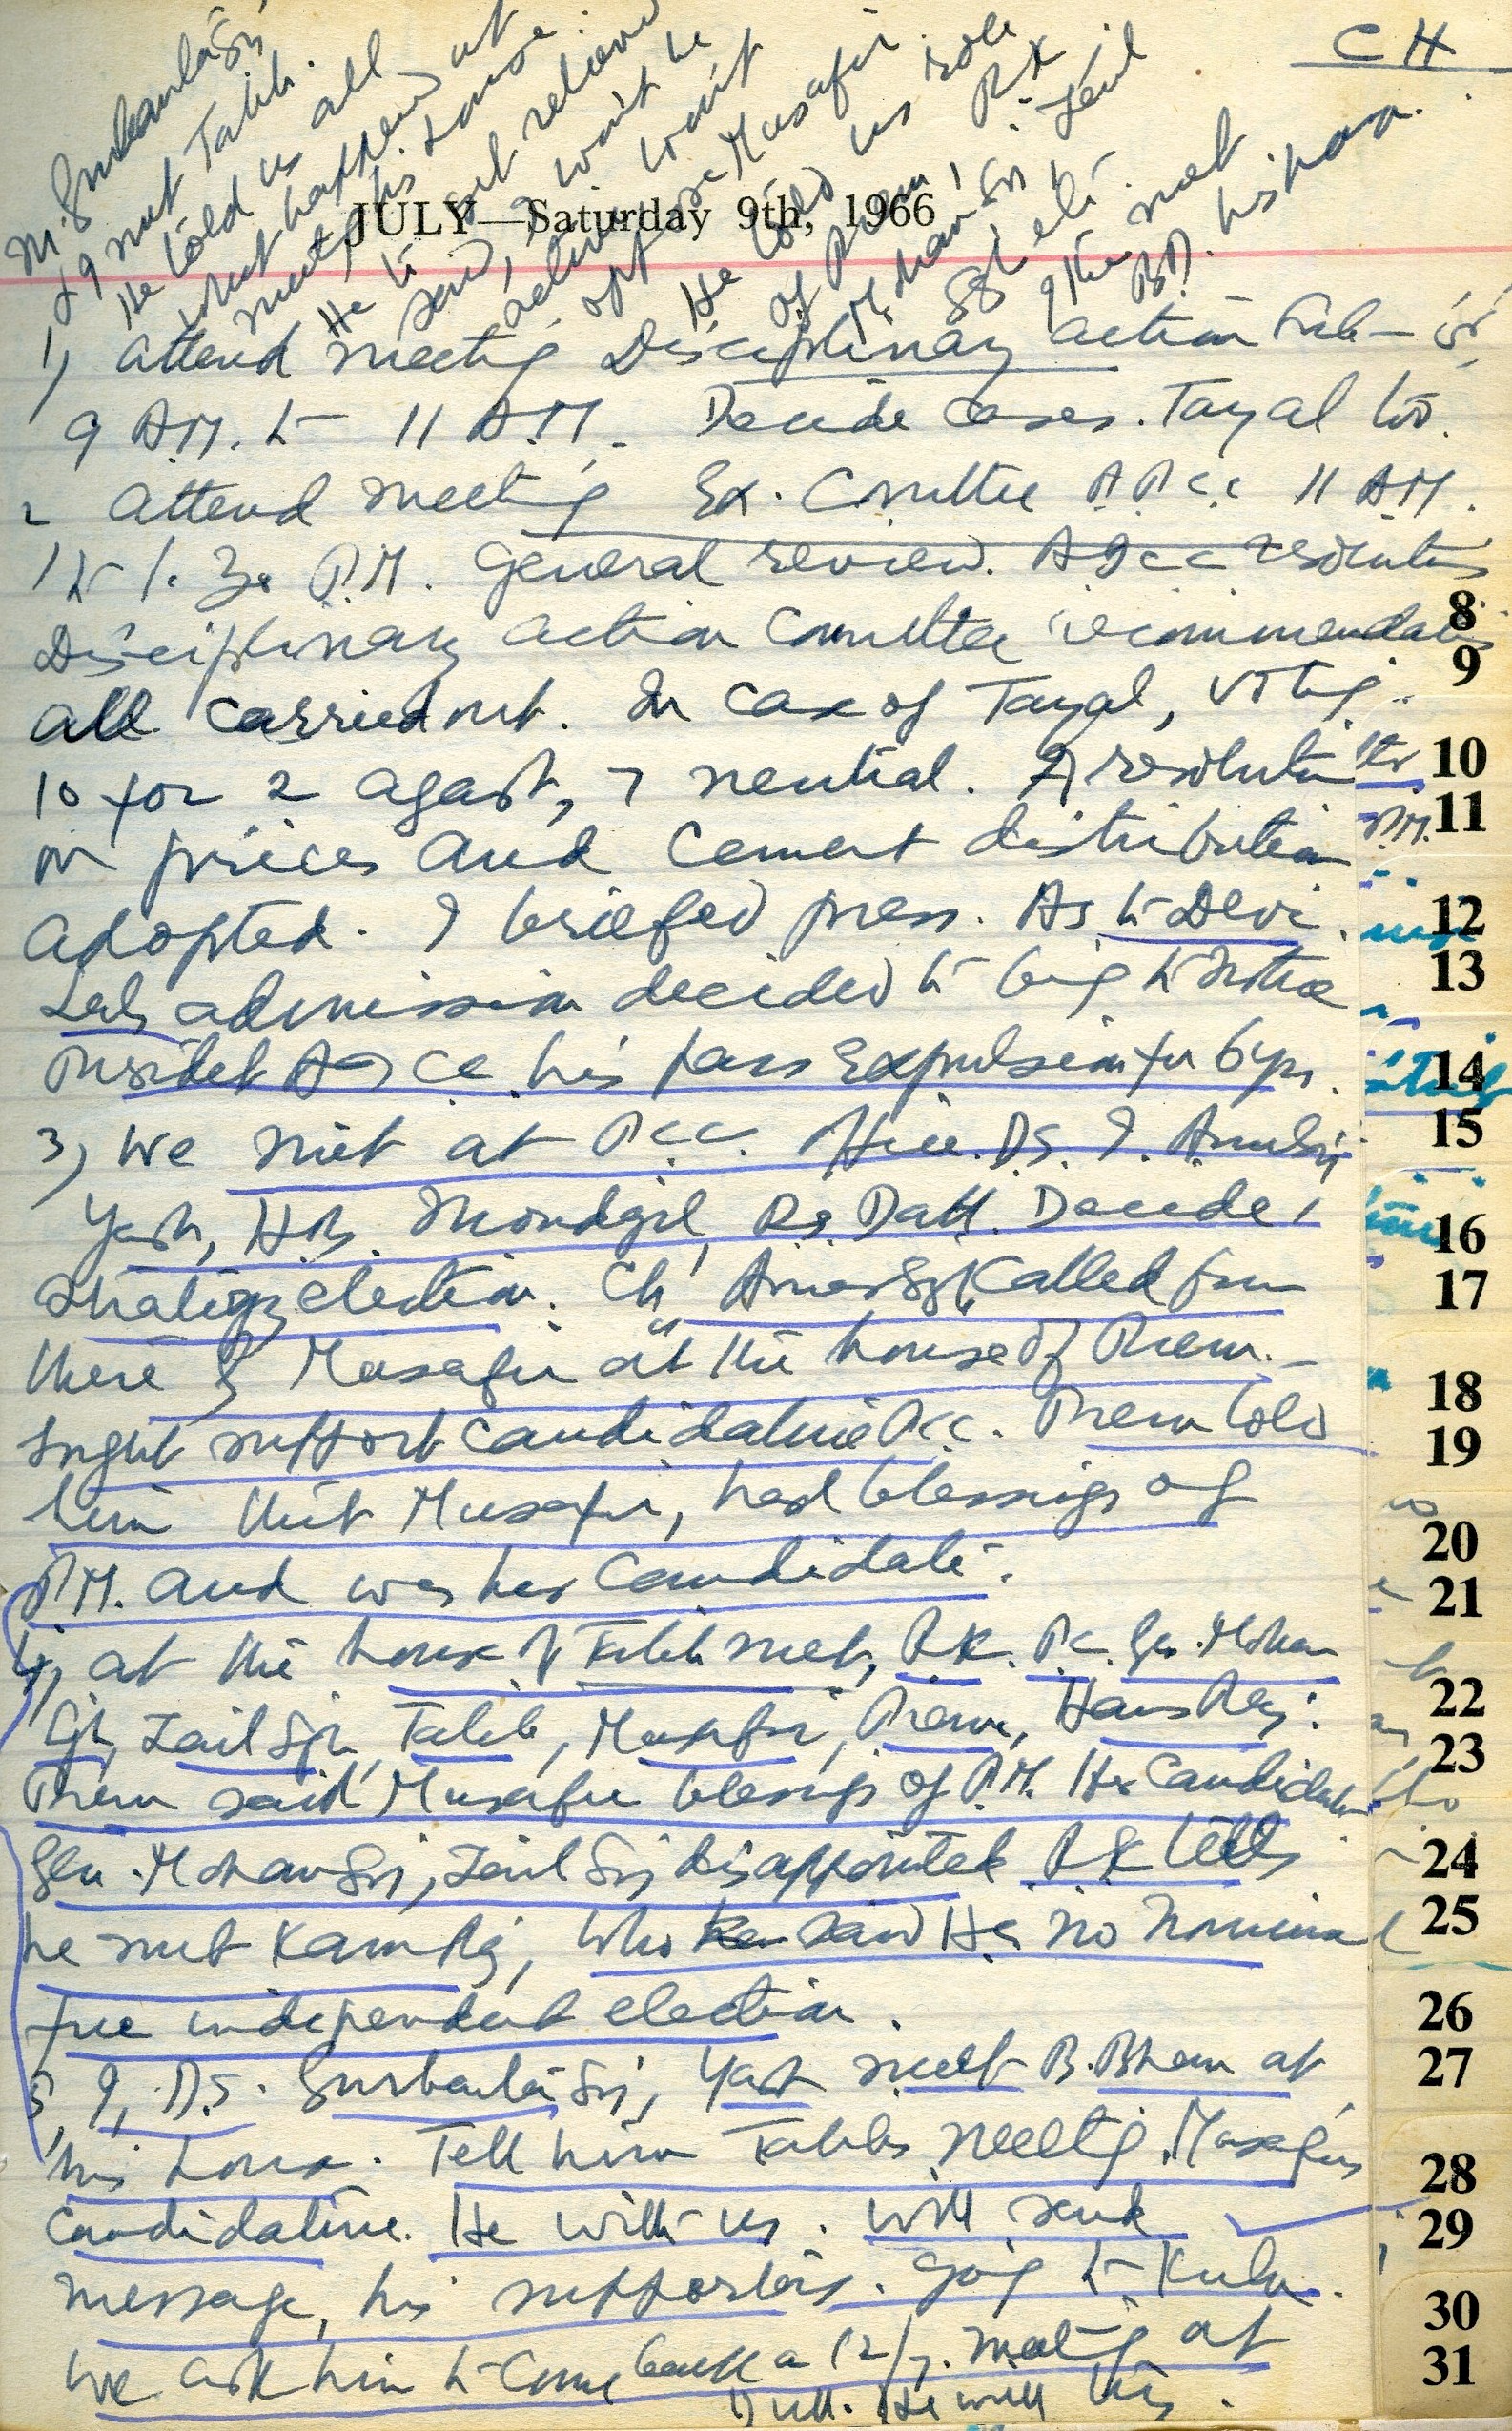 C H
Gurbanta Singh
& I met Talib.
He told us all
what happened at
meeting his house.
He to get relieved
said, I won't be
won't
oppose Musafir.
He told us role
of Prem, PK
Mohan Singh, Zail
Singh etc.
I then met
BD. his house.
JULY—Saturday 9th, 1966
1) Attend meeting Disciplinary action Sub-
9 A.M. to 11 A.M. Decide cases. Tayal too.
2 Attend meeting Ex. Committee P.P.C.C. 11 A.M.
to 1.30 P.M. General review. AICC resolutions
Disciplinary action Committee recommendations
all carried out. In case of Tayal, voting
10 for 2 against, 7 neutral. A resolution
on prices and cement distribution
adopted. I briefed press. As to Devi
Lal's admission decided to bring to notice
President AICC his past expulsion for 6 yrs.
3) We met at P.C.C. office. D.S. I.
Yash, H.R. Moudgil, Dutt. Decide
strategy election. Ch Amar Singh called from
there by Musafir at the house of Prem.
Sought support candidature PCC. Prem told
him that Musafir, had blessings of
P.M. and was her candidate.
4) at the house of Talib met, P.K. P.C. Gen. Mohan
Singh, Zail Singh, Talib, Musafir, Prem, Hans Raj.
Prem said Musafir blessings of P.M. Her Candidate
Gen. Mohan Singh, Zail Singh disappointed P.K. tells
he met Kamraj, who said He's no nominee
free independent election.
5, I, D.S. Gurbanta Singh, Yash meet B. at
his house. Tell him Talib's meeting. Musafir's
candidature. He with us. Will send
message, his supporters. Going to Kulu.
We ask him to come back on 12/7. meeting at
Dutt. He will this.
8
9
10
11
12
13
14
15
16
17
18
19
20
21
22
23
24
25
26
27
28
29
30
31